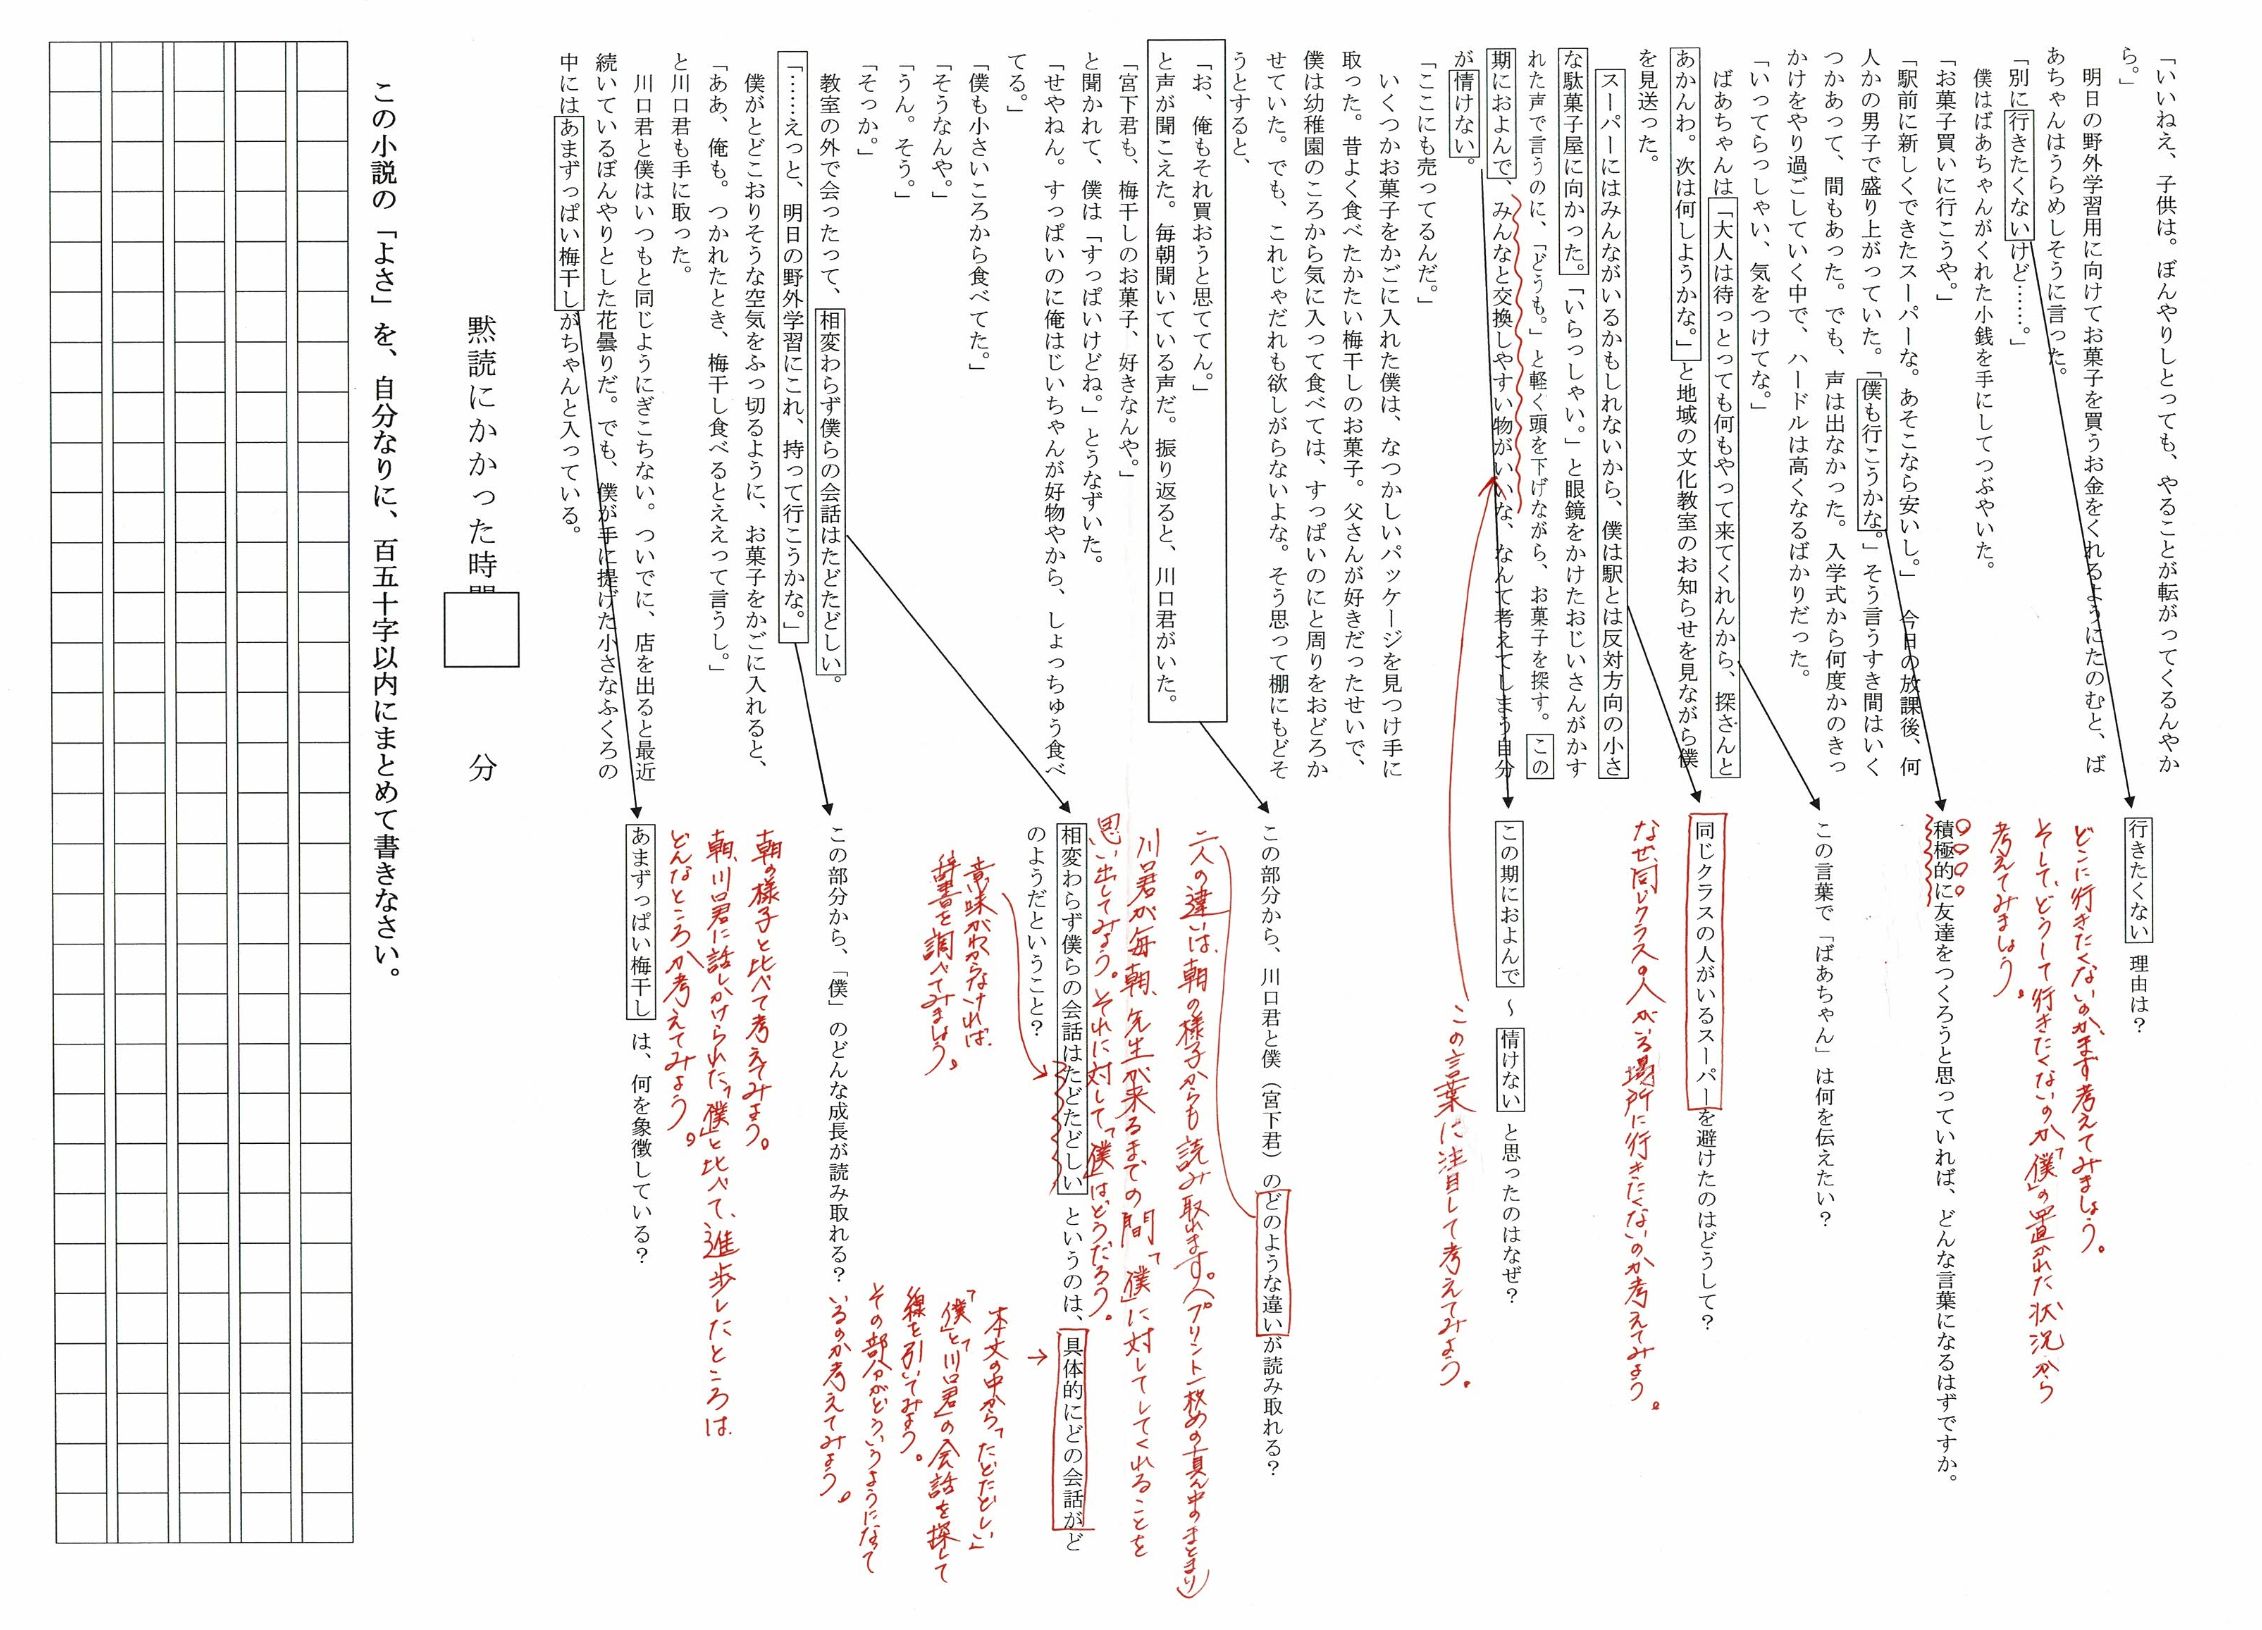 「いいねえ、子供は。ぼんやりしとっても、やることが転がってくるんやか
ら。」
明日の野外学習用に向けてお菓子を買うお金をくれるようにたのむと、ば
あちゃんはうらめしそうに言った。
「別に行きたくないけど……。」
僕はばあちゃんがくれた小銭を手にしてつぶやいた。
「お菓子買いに行こうや。」
「駅前に新しくできたスーパーな。あそこなら安いし。」　今日の放課後、何
人かの男子で盛り上がっていた。「僕も行こうかな。」そう言うすき間はいく
つかあって、間もあった。でも、声は出なかった。入学式から何度かのきっ
かけをやり過ごしていく中で、ハードルは高くなるばかりだった。
「いってらっしゃい、気をつけてな。」
ばあちゃんは「大人は待っとっても何もやって来てくれんから、探さんと
あかんわ。次は何しようかな。」と地域の文化教室のお知らせを見ながら僕
を見送った。
スーパーにはみんながいるかもしれないから、僕は駅とは反対方向の小さ
な駄菓子屋に向かった。「いらっしゃい。」と眼鏡をかけたおじいさんがかす
れた声で言うのに、「どうも。」と軽く頭を下げながら、お菓子を探す。この
期におよんで、みんなと交換しやすい物がいいな、なんて考えてしまう自分
が情けない。
「ここにも売ってるんだ。」
いくつかお菓子をかごに入れた僕は、なつかしいパッケージを見つけ手に
取った。昔よく食べたかたい梅干しのお菓子。父さんが好きだったせいで、
僕は幼稚園のころから気に入って食べては、すっぱいのにと周りをおどろか
せていた。でも、これじゃだれも欲しがらないよな。そう思って棚にもどそ
うとすると、
「お、俺もそれ買おうと思ててん。」
と声が聞こえた。毎朝聞いている声だ。振り返ると、川口君がいた。
「宮下君も、梅干しのお菓子、好きなんや。」
と聞かれて、僕は「すっぱいけどね。」とうなずいた。
「せやねん。すっぱいのに俺はじいちゃんが好物やから、しょっちゅう食べ
てる。」
「僕も小さいころから食べてた。」
「そうなんや。」
「うん。そう。」
「そっか。」
教室の外で会ったって、相変わらず僕らの会話はたどたどしい。
「……えっと、明日の野外学習にこれ、持って行こうかな。」
僕がとどこおりそうな空気をふっ切るように、お菓子をかごに入れると、
「ああ、俺も。つかれたとき、梅干し食べるとええって言うし。」
と川口君も手に取った。
川口君と僕はいつもと同じようにぎこちない。ついでに、店を出ると最近
続いているぼんやりとした花曇りだ。でも、僕が手に提げた小さなふくろの
中にはあまずっぱい梅干しがちゃんと入っている。
行きたくない 理由は？
どこに行きたくないのか、まず考えてみましょう。
そして、どうして行きたくないのか「僕」の置かれた状況から
考えてみましょう。
積極的に友達をつくろうと思っていれば、どんな言葉になるはずですか。
この言葉で「ばあちゃん」は何を伝えたい？
同じクラスの人がいるスーパーを避けたのはどうして？
なぜ、同じクラスの人がいる場所に行きたくないのか考えてみよう。
この期におよんで ～ 情けない と思ったのはなぜ？
この言葉に注目して考えてみよう。
この部分から、川口君と僕（宮下君）のどのような違いが読み取れる？
二人の違いは、朝の様子からも読み取れます。（プリント一枚めの真ん中のまとまり）
川口君が毎朝、先生が来るまでの間、「僕」に対してしてくれることを
思い出してみよう。それに対して、「僕」はどうだろう。
相変わらず僕らの会話はたどたどしい というのは、具体的にどの会話がど
のようだということ？
意味がわからなければ
辞書を調べてみましょう。
→ 本文の中から「たどたどしい」
「僕」と「川口君」の会話を探して
線を引いてみよう。
その部分がどういうようになって
いるのか考えてみよう。
この部分から、「僕」のどんな成長が読み取れる？
朝の様子と比べて考えてみよう。
朝、川口君に話しかけられた「僕」と比べて、進歩したところは
どんなところか考えてみよう。
あまずっぱい梅干し は、何を象徴している？
黙読にかかった時間　　分
この小説の「よさ」を、自分なりに、百五十字以内にまとめて書きなさい。